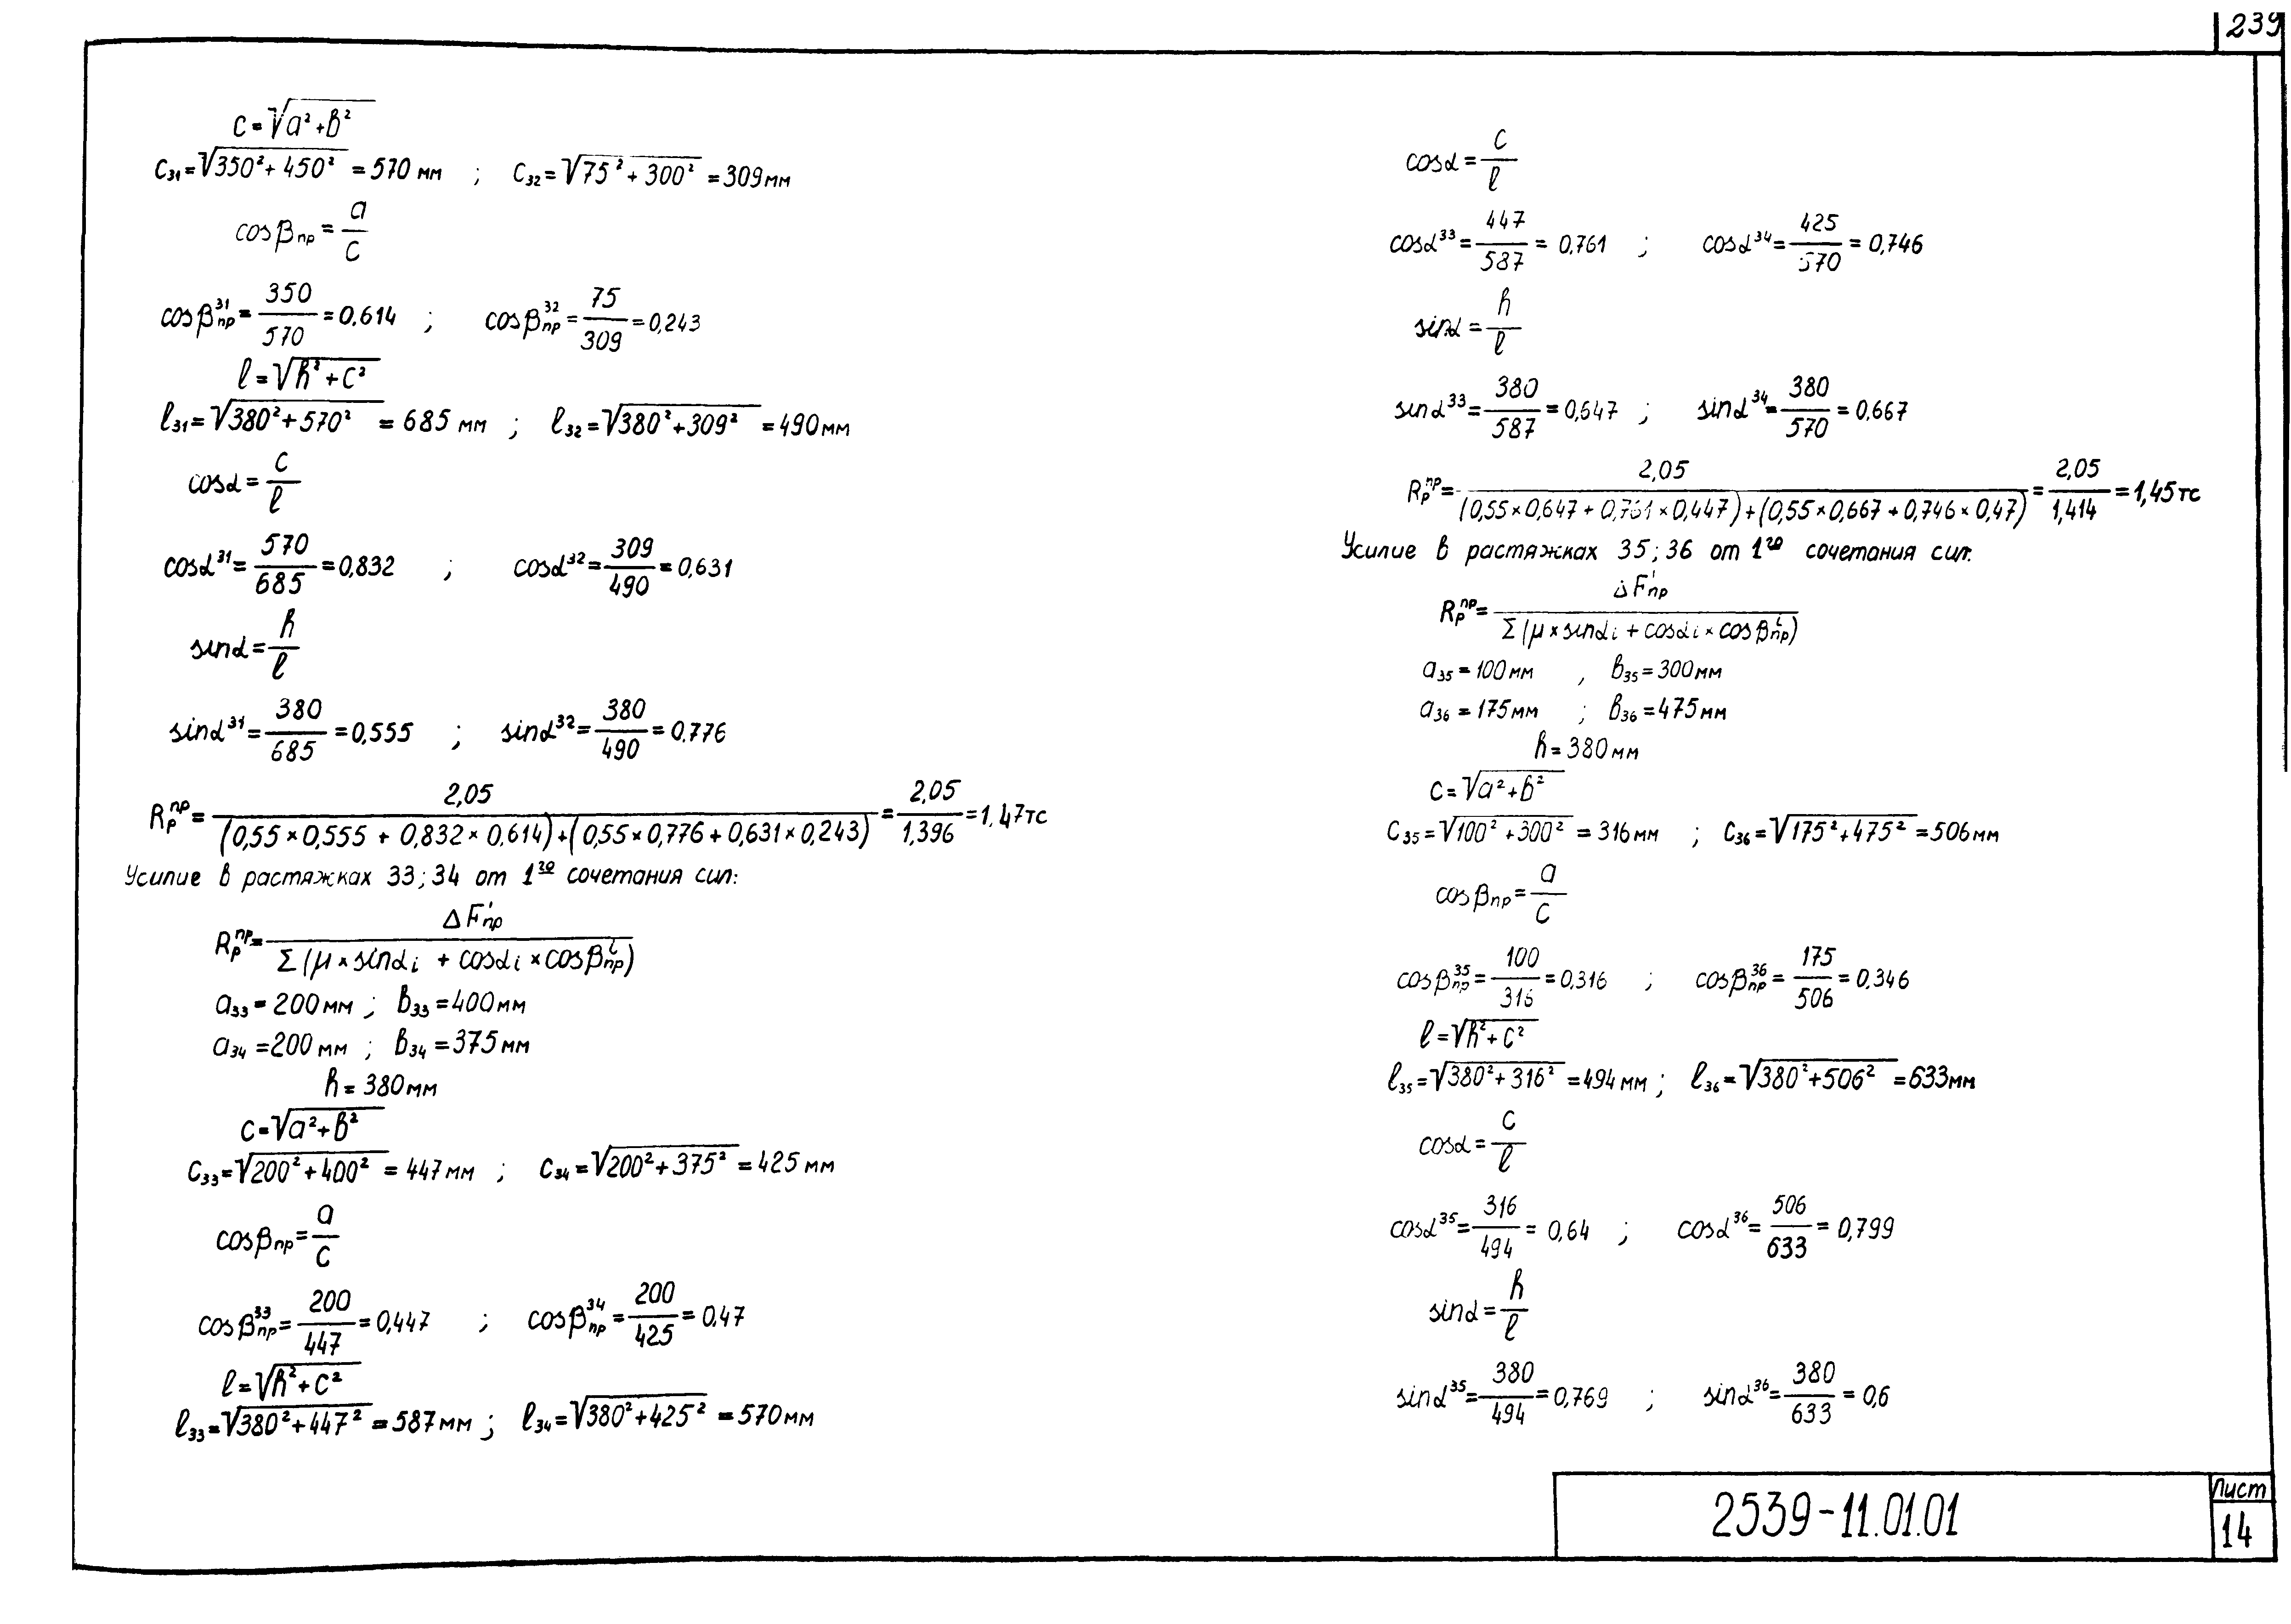 239
c=√a²+b²
c₃₁=√350²+450² = 570 мм ; c₃₂=√75²+300² = 309 мм
cosβпр = a/c
cosβ³¹пр = 350/570 = 0,614 ; cosβ³²пр = 75/309 = 0,243
ℓ=√h²+c²
ℓ₃₁=√380²+570² = 685 мм ; ℓ₃₂=√380²+309² = 490 мм
cosα = c/ℓ
cosα³¹ = 570/685 = 0,832 ; cosα³² = 309/490 = 0,631
sinα = h/ℓ
sinα³¹ = 380/685 = 0,555 ; sinα³² = 380/490 = 0,776
Rₚᵖʳ = 2,05/(0,55×0,555 + 0,832×0,614)+(0,55×0,776 + 0,631×0,243) = 2,05/1,396 = 1,47 тс
Усилие в растяжках 33; 34 от 1го сочетания сил:
Rₚᵖʳ = ΔF'пр/Σ(μ×sinαi + cosαi×cosβⁱпр)
a₃₃=200 мм ; b₃₃=400 мм
a₃₄=200 мм ; b₃₄=375 мм
h=380 мм
c=√a²+b²
c₃₃=√200²+400² = 447 мм ; c₃₄=√200²+375² = 425 мм
cosβпр = a/c
cosβ³³пр = 200/447 = 0,447 ; cosβ³⁴пр = 200/425 = 0,47
ℓ=√h²+c²
ℓ₃₃=√380²+447² = 587 мм ; ℓ₃₄=√380²+425² = 570 мм
cosα = c/ℓ
cosα³³ = 447/587 = 0,761 ; cosα³⁴ = 425/570 = 0,746
sinα = h/ℓ
sinα³³ = 380/587 = 0,647 ; sinα³⁴ = 380/570 = 0,667
Rₚᵖʳ = 2,05/(0,55×0,647 + 0,761×0,447)+(0,55×0,667 + 0,746×0,47) = 2,05/1,414 = 1,45 тс
Усилие в растяжках 35; 36 от 1го сочетания сил:
Rₚᵖʳ = ΔF'пр/Σ(μ×sinαi + cosαi×cosβⁱпр)
a₃₅=100 мм , b₃₅=300 мм
a₃₆=175 мм ; b₃₆=475 мм
h=380 мм
c=√a²+b²
c₃₅=√100²+300² = 316 мм ; c₃₆=√175²+475² = 506 мм
cosβпр = a/c
cosβ³⁵пр = 100/316 = 0,316 ; cosβ³⁶пр = 175/506 = 0,346
ℓ=√h²+c²
ℓ₃₅=√380²+316² = 494 мм ; ℓ₃₆=√380²+506² = 633 мм
cosα = c/ℓ
cosα³⁵ = 316/494 = 0,64 ; cosα³⁶ = 506/633 = 0,799
sinα = h/ℓ
sinα³⁵ = 380/494 = 0,769 ; sinα³⁶ = 380/633 = 0,6
2539-11.01.01
Лист
14